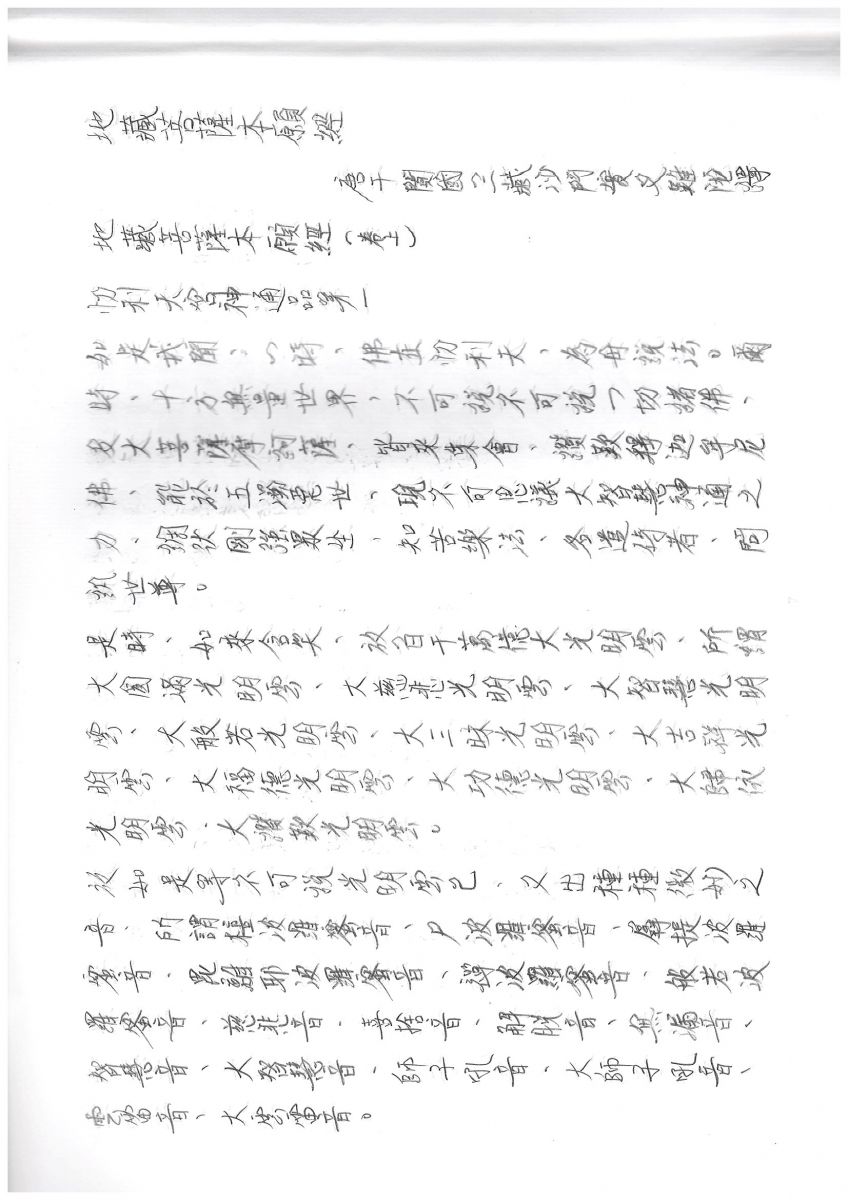 地藏菩薩本願經
唐于闐國三藏沙門實叉難陀譯
地藏菩薩本願經(卷上)
忉利天宮神通品第一
如是我聞、一時、佛在忉利天、為母說法。爾
時、十方無量世界、不可說不可說一切諸佛、
及大菩薩摩訶薩、皆來集會、讚歎釋迦牟尼
佛、能於五濁惡世、現不可思議大智慧神通之
力、調伏剛強眾生、知苦樂法、各遣侍者、問
訊世尊。
是時、如來含笑、放百千萬億大光明雲、所謂
大圓滿光明雲、大慈悲光明雲、大智慧光明
雲、大般若光明雲、大三昧光明雲、大吉祥光
明雲、大福德光明雲、大功德光明雲、大歸依
光明雲、大讚歎光明雲。
放如是等不可說光明雲已、又出種種微妙之
音、所謂檀波羅蜜音、尸波羅蜜音、羼提波羅
蜜音、毘離耶波羅蜜音、禪波羅蜜音、般若波
羅蜜音、慈悲音、喜捨音、解脫音、無漏音、
智慧音、大智慧音、師子吼音、大師子吼音、
雲雷音、大雲雷音。